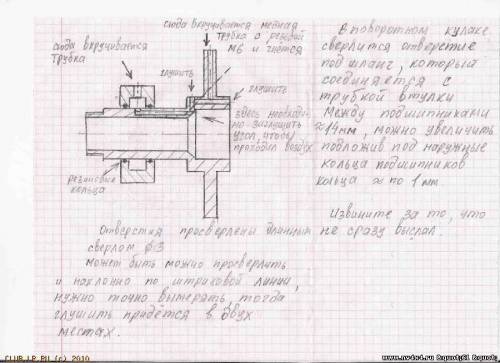 сюда вкручивается медная
трубка с резьбой
М6 и гнётся
сюда вкручивается
трубка
глушить
глушить
здесь необходи-
мо заглушить
угол, чтобы
проходил воздух
резиновые
кольца
В поворотном кулаке
сверлится отверстие
под шланг, который
соединяется с
трубкой втулки
Между подшипниками
≈14мм, можно увеличить
подложив под наружные
кольца подшипников
кольца ≈ по 1 мм.
Извините за то, что
не сразу выслал.
Отверстия просверлены длинным
сверлом ф3
может быть можно просверлить
и наклонно по штриховой линии,
нужно точно вымерять, тогда
глушить придётся в двух
местах.
CLUB.LR.RU (c) 2010